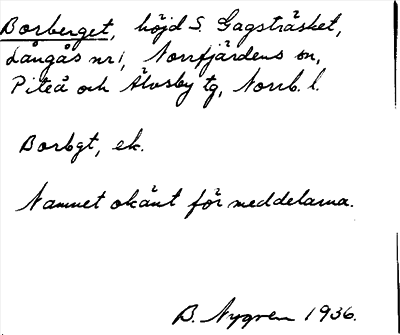 Borberget, höjd S. Gagsträsket,
Långås nr 1, Norrfjärdens sn,
Piteå och Älvsby tg, Norrb. l.
Borbgt, ek.
Namnet okänt för meddelarna.
B. Nygren 1936.